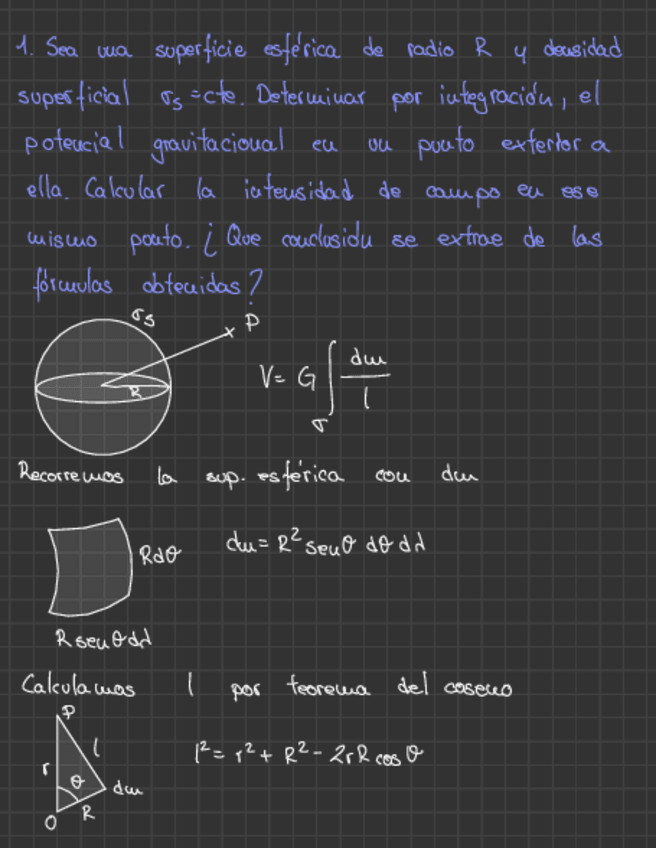 1. Sea una superficie esférica de radio R y densidad
superficial σs = cte. Determinar por integración, el
potencial gravitacional en un punto exterior a
ella. Calcular la intensidad de campo en ese
mismo punto. ¿Que conclusión se extrae de las
fórmulas obtenidas?
σs
P
R
V = G ∫σ dm / l
Recorremos la sup. esférica con dm
Rdθ
dm = R² senθ dθ dλ
R senθ dλ
Calculamos l por teorema del coseno
P
l
r
θ
dm
R
O
l² = r² + R² - 2rR cos θ